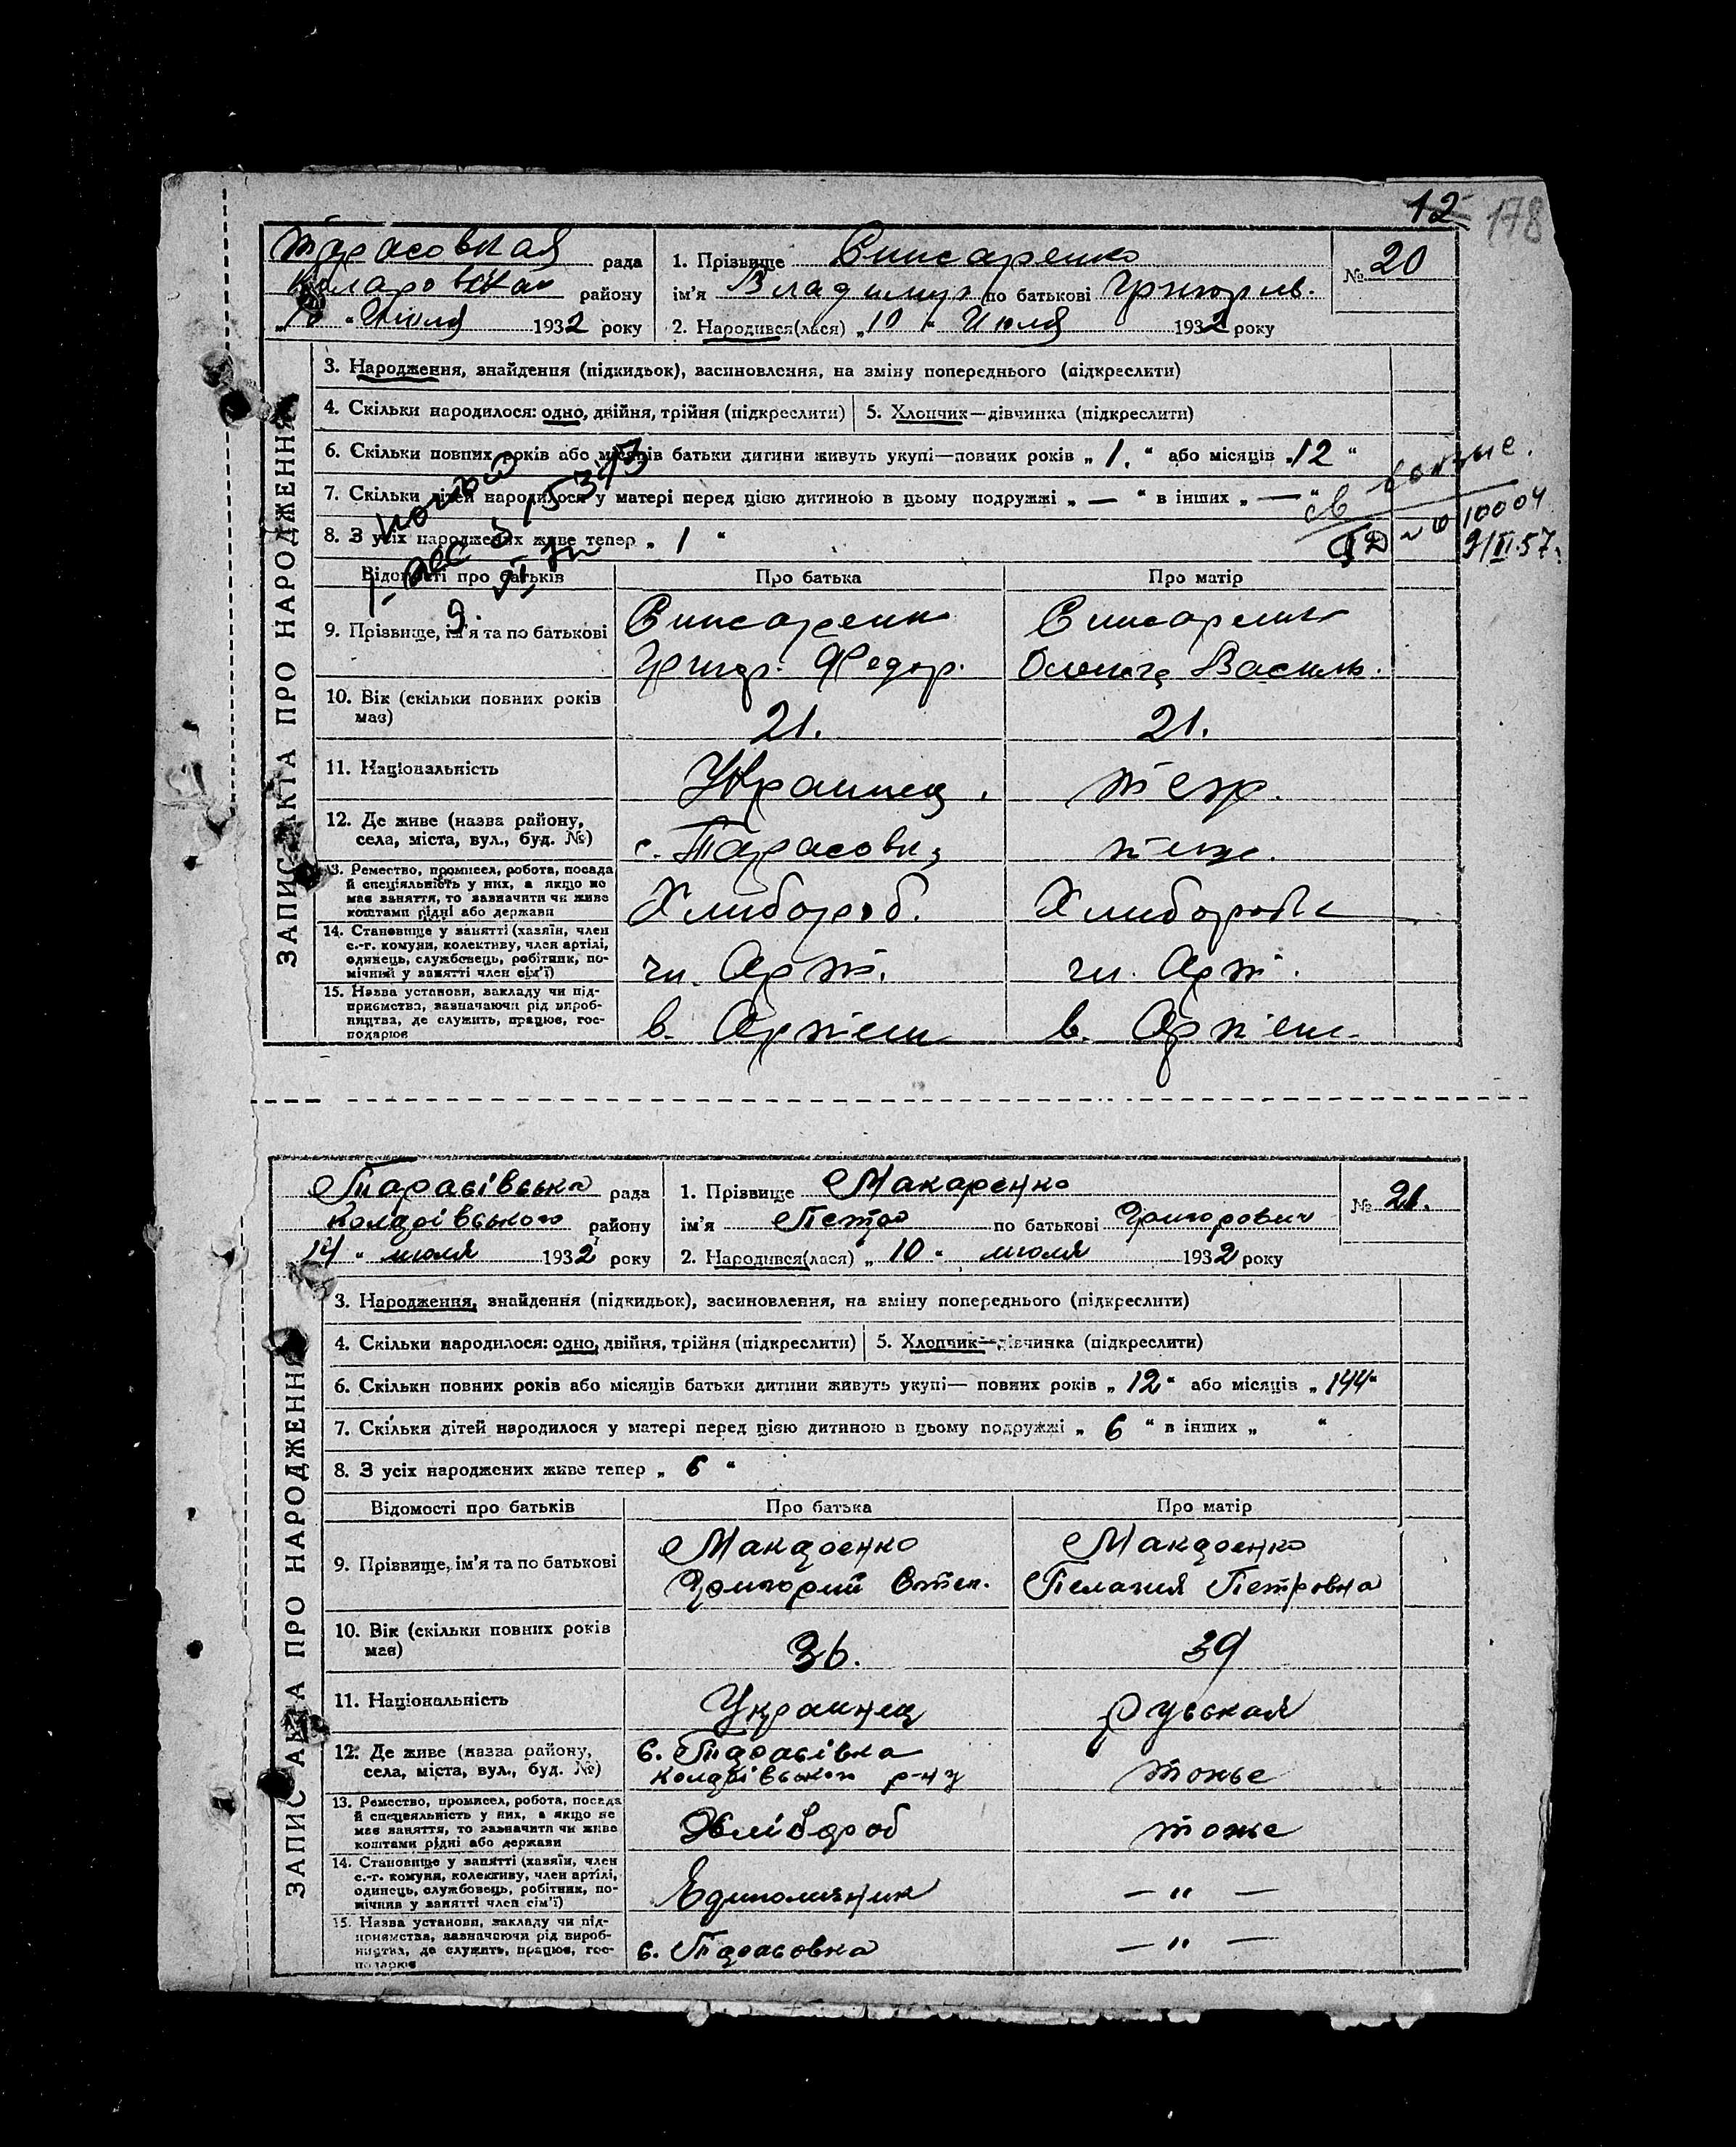 12 178
Тарасовская рада
Коларовским району
„10 " Июля 1932 року
1. Прізвище Слисаренко
ім'я Владимир по батькові Григорив.
2. Народився(лася) „10 " Июля 1932 року
№ 20
ЗАПИС АКТА ПРО НАРОДЖЕННЯ
3. Народження, знайдення (підкидьок), засиновлення, на зміну попереднього (підкреслити)
4. Скільки народилося: одно, двійня, трійня (підкреслити) 5. Хлопчик—дівчинка (підкреслити)
6. Скільки повних років або місяців батьки дитини живуть укупі—повних років „ 1. " або місяців „12 "
7. Скільки дітей народилося у матері перед цією дитиною в цьому подружжі „ — " в інших „ — "
8. З усіх народжених живе тепер „ 1 "
10004
9/II.57.
Відомості про батьків Про батька Про матір
9. Прізвище, ім'я та по батькові
Слисаренк Слисаренк
Григор. Федор. Василь.
10. Вік (скільки повних років має)
21. 21.
11. Національність
Украинец. тежр.
12. Де живе (назва району, села, міста, вул., буд. №)
с. Тарасовка
13. Ремество, промисел, робота, посада й спеціяльність у них, а якщо не має заняття, то зазначити чи живе коштами рідні або держави
Хлибороб. Хлиборобка
14. Становище у занятті (хазяїн, член с.-г. комуни, колективу, член артілі, одинець, службовець, робітник, помічний у занятті член сім'ї)
чл. Арт. чл. Арт.
15. Назва установи, закладу чи підприємства, зазначаючи рід виробництва, де служить, працює, господарює
в. Артели в. Артели
Тарасівська рада
Коларівського району
14 " июля 1932 року
1. Прізвище Макаренко
ім'я Петро по батькові Григорович
2. Народився(лася) „ 10 " июля 1932 року
№ 21.
ЗАПИС АКТА ПРО НАРОДЖЕННЯ
3. Народження, знайдення (підкидьок), засиновлення, на зміну попереднього (підкреслити)
4. Скільки народилося: одно, двійня, трійня (підкреслити) 5. Хлопчик—дівчинка (підкреслити)
6. Скільки повних років або місяців батьки дитини живуть укупі— повних років „ 12 " або місяців „ 144"
7. Скільки дітей народилося у матері перед цією дитиною в цьому подружжі „ 6 " в інших „ "
8. З усіх народжених живе тепер „ 6 "
Відомості про батьків Про батька Про матір
9. Прізвище, ім'я та по батькові
Макаренко Макаренко
Григорий Степ. Пелагия Петровна
10. Вік (скільки повних років має)
36. 39
11. Національність
Украинец руськая
12. Де живе (назва району, села, міста, вул., буд. №)
с. Тарасівка
Коларівського р-ну тоже
13. Ремество, промисел, робота, посада й спецеяльність у них, а якщо не має заняття, то зазначити чи живе коштами рідні або держави
Хлібороб тоже
14. Становище у занятті (хазяїн, член с.-г. комуни, колективу, член артілі, одинець, службовець, робітник, помічник у занятті член сім'ї)
Единоличник — „ —
15. Назва установи, закладу чи підприємства, зазначаючи рід виробництва, де служить, працює, господарює
с. Тарасовка — „ —